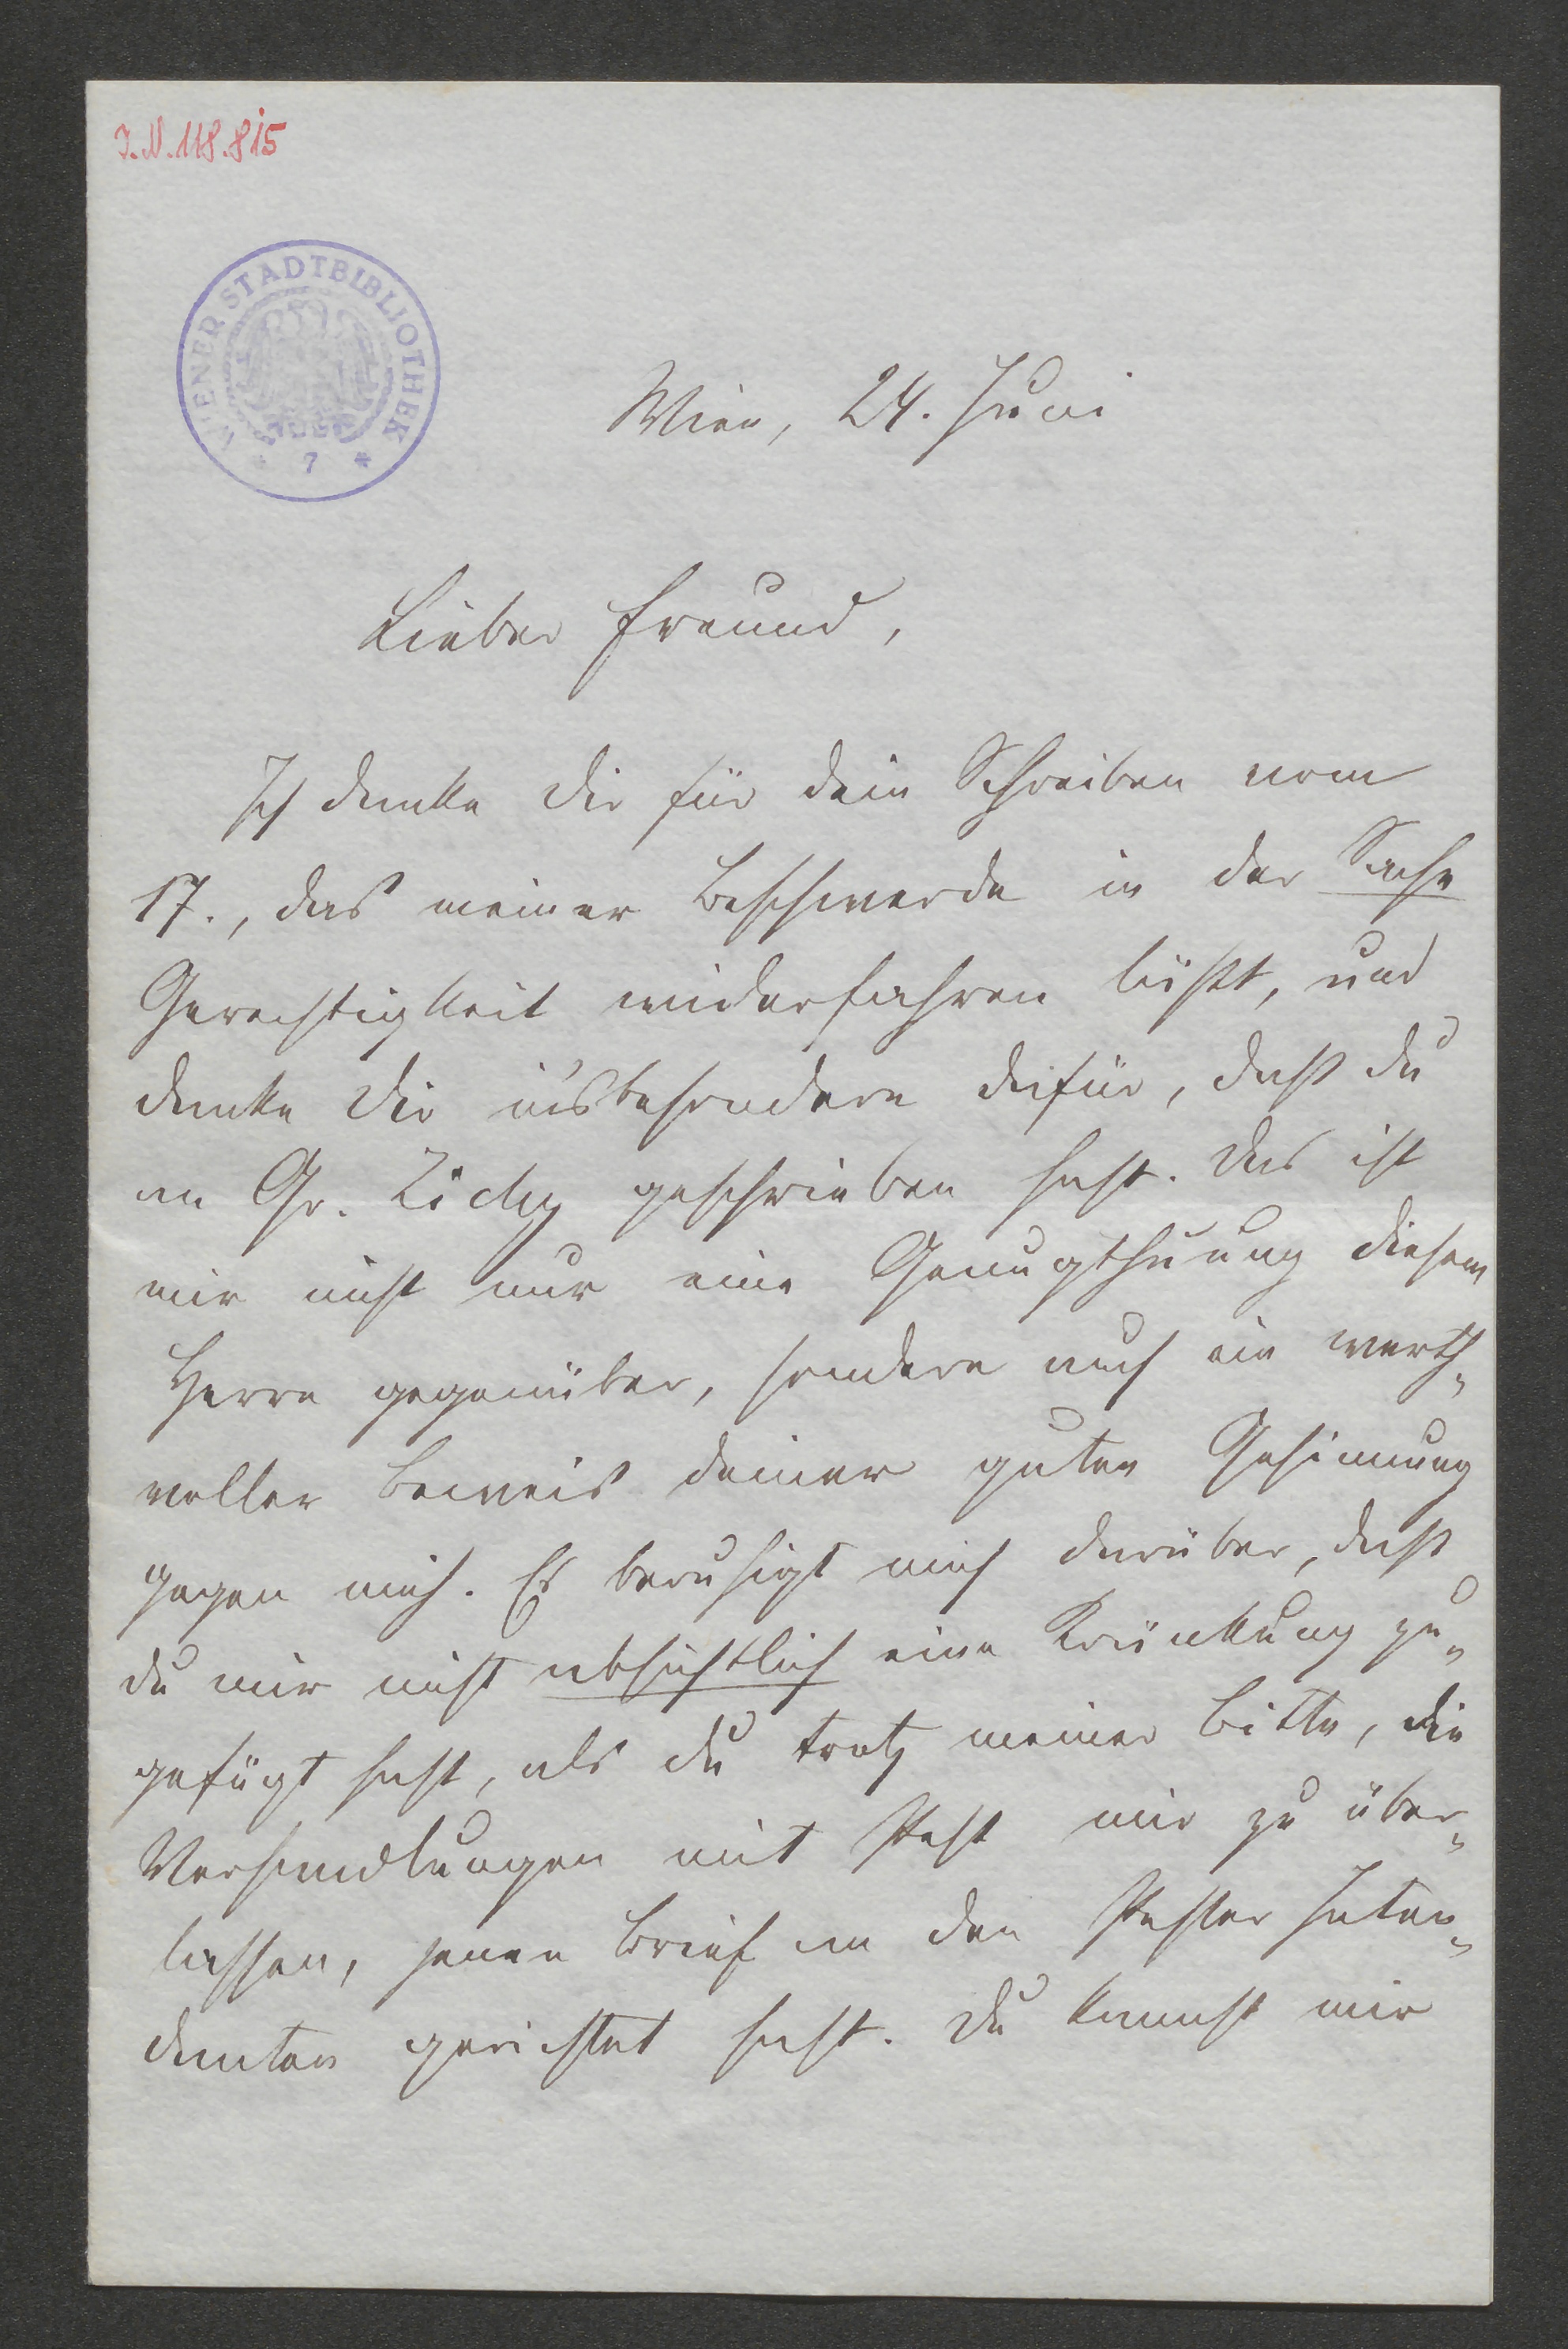 I.N.118.815
WIENER STADTBIBLIOTHEK
* 7 *
Wien, 24. Juni
Lieber Freund,
Ich danke dir für dein Schreiben vom
17., das meiner Beschwerde in der Sache
Gerechtigkeit widerfahren läßt, und
danke dir insbesondere dafür, daß du
an Gr. Zichy geschrieben hast. Das ist
mir nicht nur eine Genugthuung diesem
Herrn gegenüber, sondern auch ein werth-
voller Beweis deiner guten Gesinnung
gegen mich. Es beruhigt mich darüber, daß
du mir nicht absichtlich eine Kränkung zu-
gefügt hast, als du trotz meiner Bitte, die
Verhandlungen mit Pest mir zu über-
lassen, jenen Brief an den Pester Inten-
danten gerichtet hast. Du kannst mir